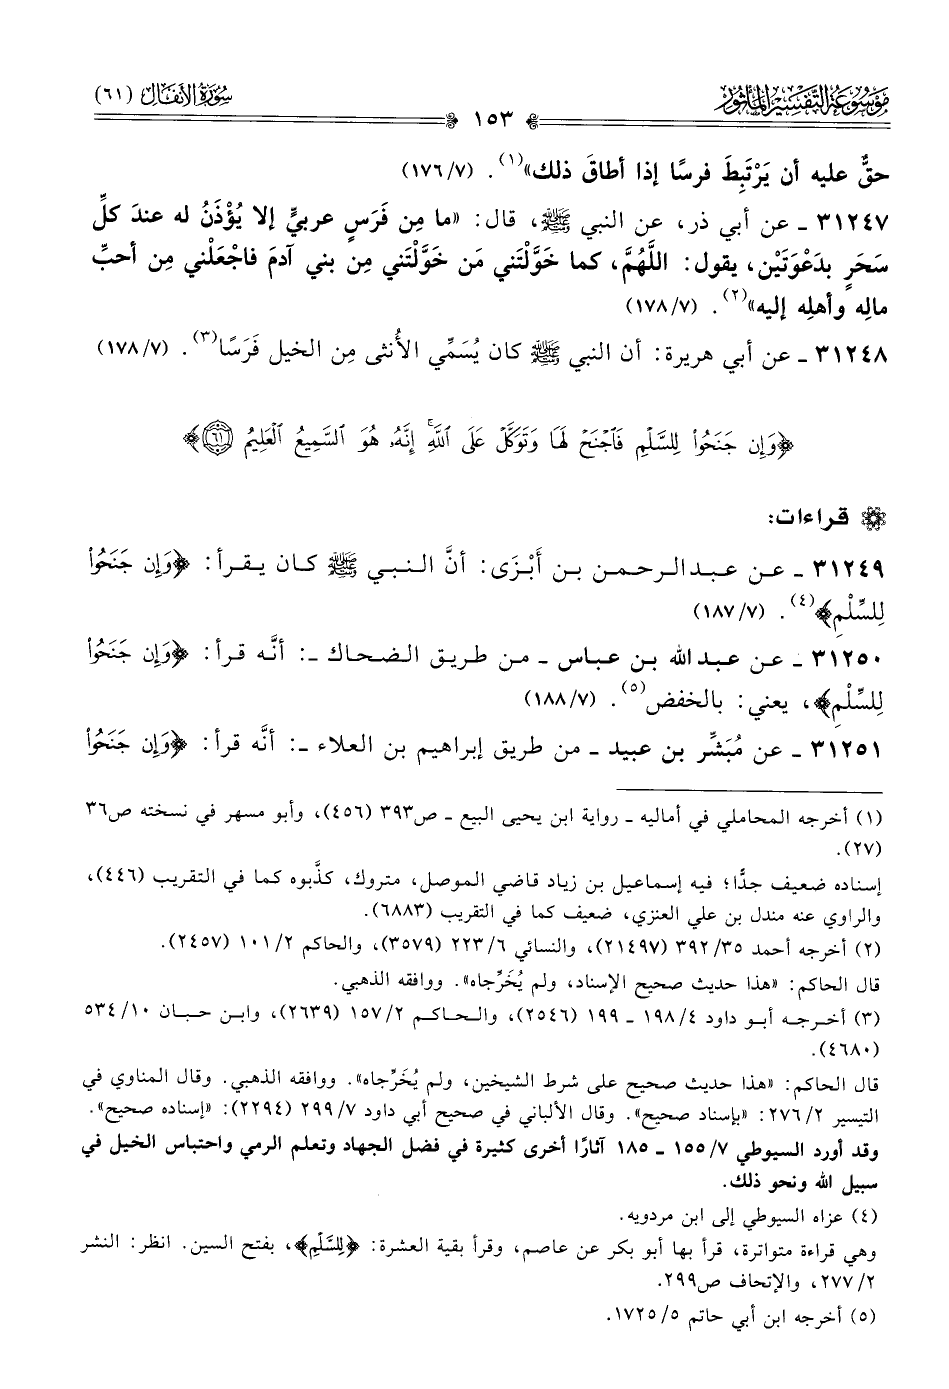 موسوعة التفسير المأثور
سورة الأنفال (٦١)
١٥٣
حقٌّ عليه أن يَرْتَبِطَ فرسًا إذا أطاقَ ذلك»(١). (١٧٦/٧)
٣١٢٤٧ ـ عن أبي ذر، عن النبي ﷺ، قال: «ما مِن فَرَسٍ عربيٍّ إلا يُؤْذَنُ له عندَ كلِّ
سَحَرٍ بدَعْوَتَيْن، يقول: اللَّهُمَّ، كما خَوَّلْتَني مَن خَوَّلْتَني مِن بني آدمَ فاجْعَلْني مِن أحبِّ
مالِه وأهلِه إليه»(٢). (١٧٨/٧)
٣١٢٤٨ ـ عن أبي هريرة: أن النبي ﷺ كان يُسَمِّي الأُنثى مِن الخيل فَرَسًا(٣). (١٧٨/٧)
﴿وَإِن جَنَحُوا۟ لِلسَّلْمِ فَٱجْنَحْ لَهَا وَتَوَكَّلْ عَلَى ٱللَّهِۚ إِنَّهُۥ هُوَ ٱلسَّمِيعُ ٱلْعَلِيمُ ٦١﴾
قراءات:
٣١٢٤٩ ـ عن عبدالرحمن بن أَبْزَى: أنَّ النبي ﷺ كان يقرأ: ﴿وَإِن جَنَحُوا۟
لِلسِّلْمِ﴾(٤). (١٨٧/٧)
٣١٢٥٠ ـ عن عبدالله بن عباس ـ من طريق الضحاك ـ: أنَّه قرأ: ﴿وَإِن جَنَحُوا۟
لِلسِّلْمِ﴾، يعني: بالخفض(٥). (١٨٨/٧)
٣١٢٥١ ـ عن مُبَشِّر بن عبيد ـ من طريق إبراهيم بن العلاء ـ: أنَّه قرأ: ﴿وَإِن جَنَحُوا۟
(١) أخرجه المحاملي في أماليه ـ رواية ابن يحيى البيع ـ ص٣٩٣ (٤٥٦)، وأبو مسهر في نسخته ص٣٦
(٢٧).
إسناده ضعيف جدًّا؛ فيه إسماعيل بن زياد قاضي الموصل، متروك، كذَّبوه كما في التقريب (٤٤٦)،
والراوي عنه مندل بن علي العنزي، ضعيف كما في التقريب (٦٨٨٣).
(٢) أخرجه أحمد ٣٩٢/٣٥ (٢١٤٩٧)، والنسائي ٢٢٣/٦ (٣٥٧٩)، والحاكم ١٠١/٢ (٢٤٥٧).
قال الحاكم: «هذا حديث صحيح الإسناد، ولم يُخَرِّجاه». ووافقه الذهبي.
(٣) أخرجه أبو داود ١٩٨/٤ ـ ١٩٩ (٢٥٤٦)، والحاكم ١٥٧/٢ (٢٦٣٩)، وابن حبان ٥٣٤/١٠
(٤٦٨٠).
قال الحاكم: «هذا حديث صحيح على شرط الشيخين، ولم يُخَرِّجاه». ووافقه الذهبي. وقال المناوي في
التيسير ٢٧٦/٢: «بإسناد صحيح». وقال الألباني في صحيح أبي داود ٢٩٩/٧ (٢٢٩٤): «إسناده صحيح».
وقد أورد السيوطي ١٥٥/٧ ـ ١٨٥ آثارًا أخرى كثيرة في فضل الجهاد وتعلم الرمي واحتباس الخيل في
سبيل الله ونحو ذلك.
(٤) عزاه السيوطي إلى ابن مردويه.
وهي قراءة متواترة، قرأ بها أبو بكر عن عاصم، وقرأ بقية العشرة: ﴿لِلسَّلْمِ﴾، بفتح السين. انظر: النشر
٢٧٧/٢، والإتحاف ص٢٩٩.
(٥) أخرجه ابن أبي حاتم ١٧٢٥/٥.